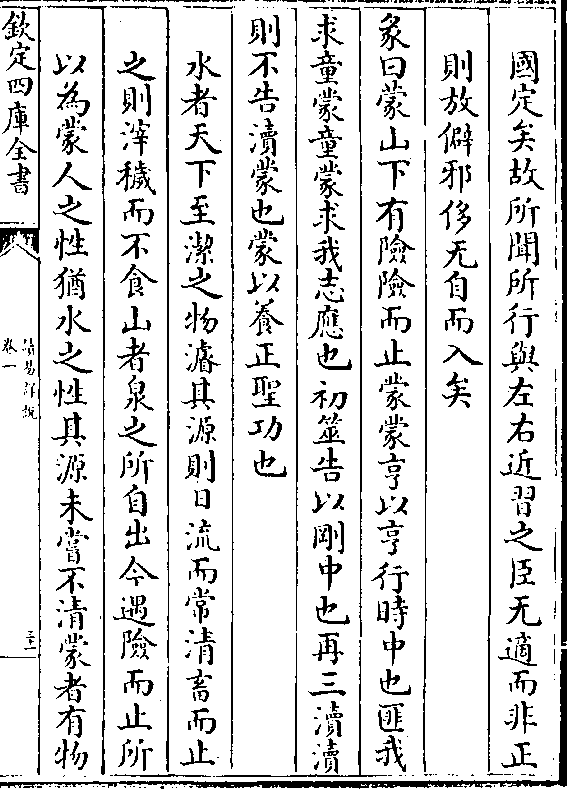 國定矣故所聞所行與左右近習之臣无適而非正
則放僻邪侈无自而入矣
彖曰蒙山下有險險而止蒙蒙亨以亨行時中也匪我
求童蒙童蒙求我志應也初筮告以剛中也再三瀆瀆
則不告瀆蒙也蒙以養正聖功也
水者天下至潔之物濬其源則日流而常清畜而止
之則滓穢而不食山者泉之所自出今遇險而止所
以為蒙人之性猶水之性其源未嘗不清蒙者有物
欽定四庫全書
讀易詳說
卷一